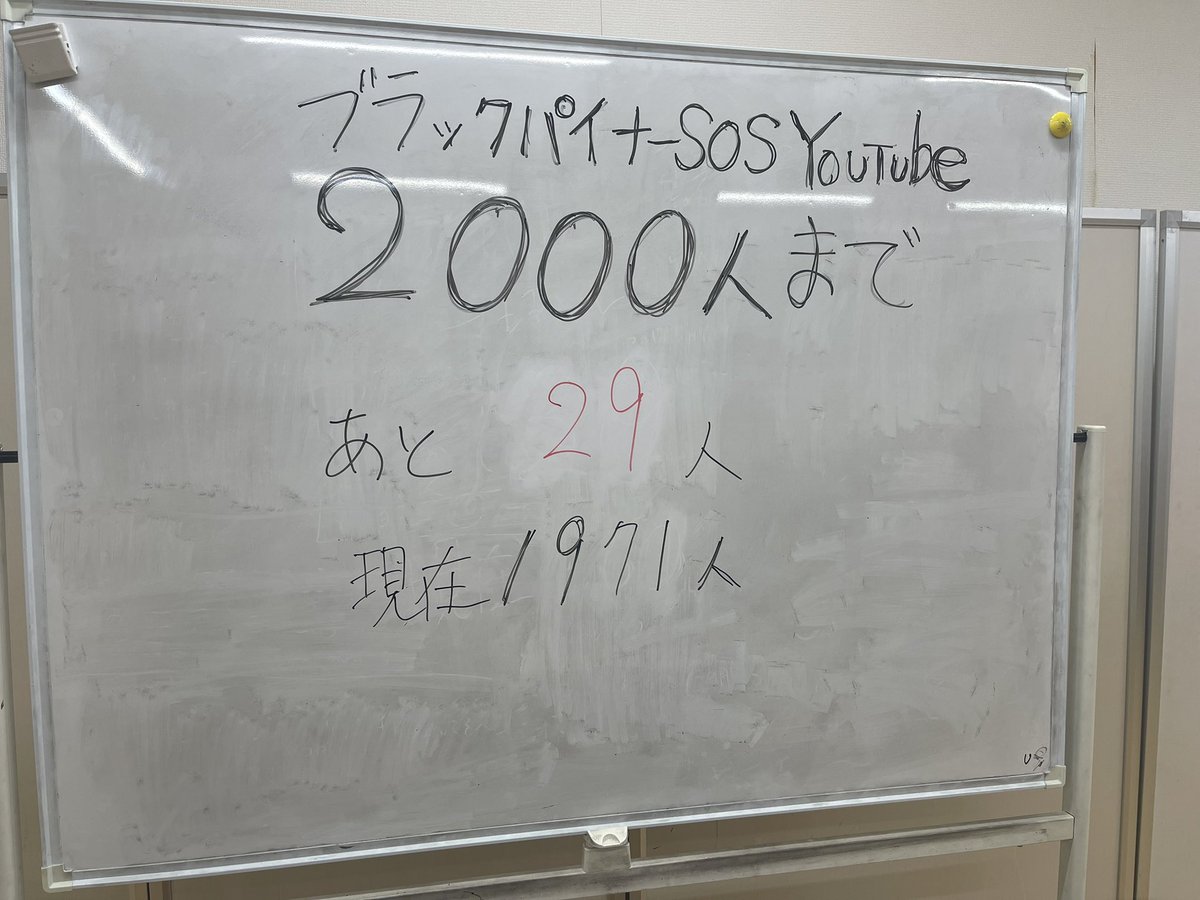 ブラックパイナーSOS YouTube
2000人まで
あと 29 人
現在1971人